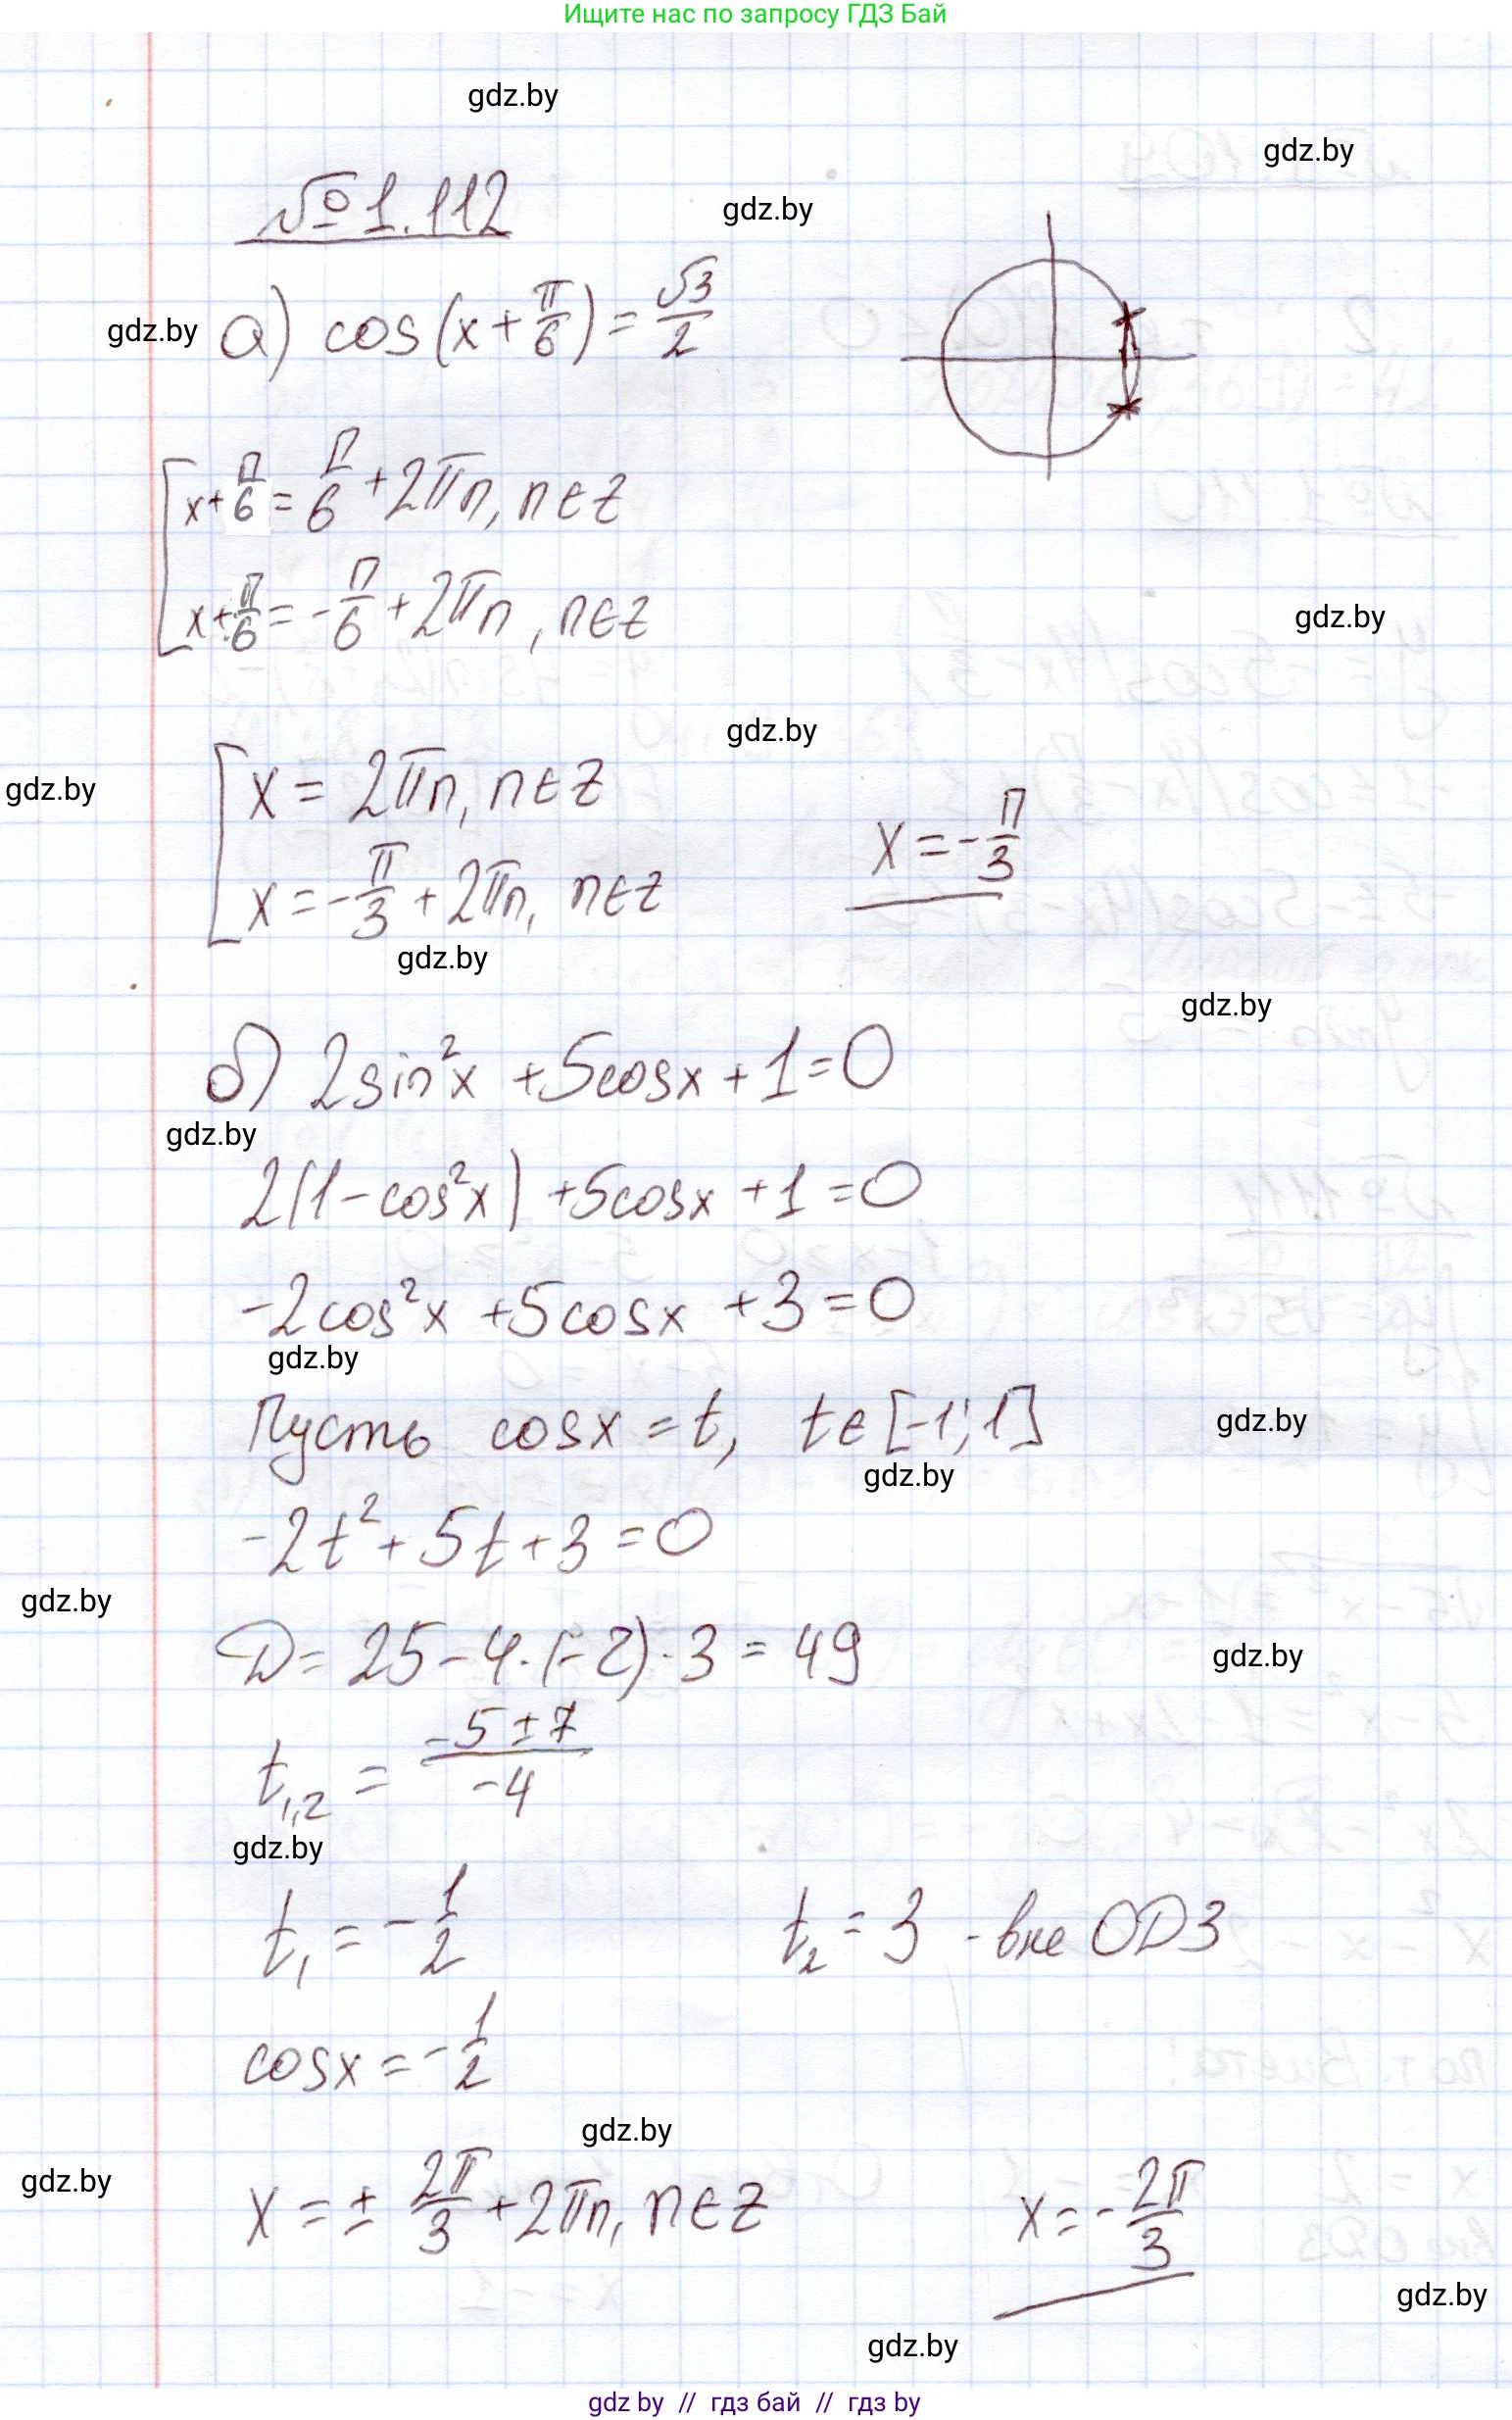 Ищите нас по запросу ГДЗ Бай
gdz.by
gdz.by
№1.112
gdz.by
gdz.by
а) cos(x + π/6) = √3/2
x + π/6 = π/6 + 2πn, n∈Z
x + π/6 = -π/6 + 2πn, n∈Z
gdz.by
gdz.by
gdz.by
x = 2πn, n∈Z
x = -π/3
x = -π/3 + 2πn, n∈Z
gdz.by
gdz.by
б) 2sin²x + 5cosx + 1 = 0
gdz.by
2(1 - cos²x) + 5cosx + 1 = 0
-2cos²x + 5cosx + 3 = 0
gdz.by
Пусть cosx = t, t∈[-1; 1]
gdz.by
gdz.by
-2t² + 5t + 3 = 0
gdz.by
D = 25 - 4·(-2)·3 = 49
gdz.by
t₁,₂ = (-5 ± 7)/-4
gdz.by
t₁ = -1/2 t₂ = 3 - вне ОДЗ
cosx = -1/2
gdz.by
gdz.by
x = ± 2π/3 + 2πn, n∈Z x = -2π/3
gdz.by
gdz.by
gdz by // гдз бай // гдз by